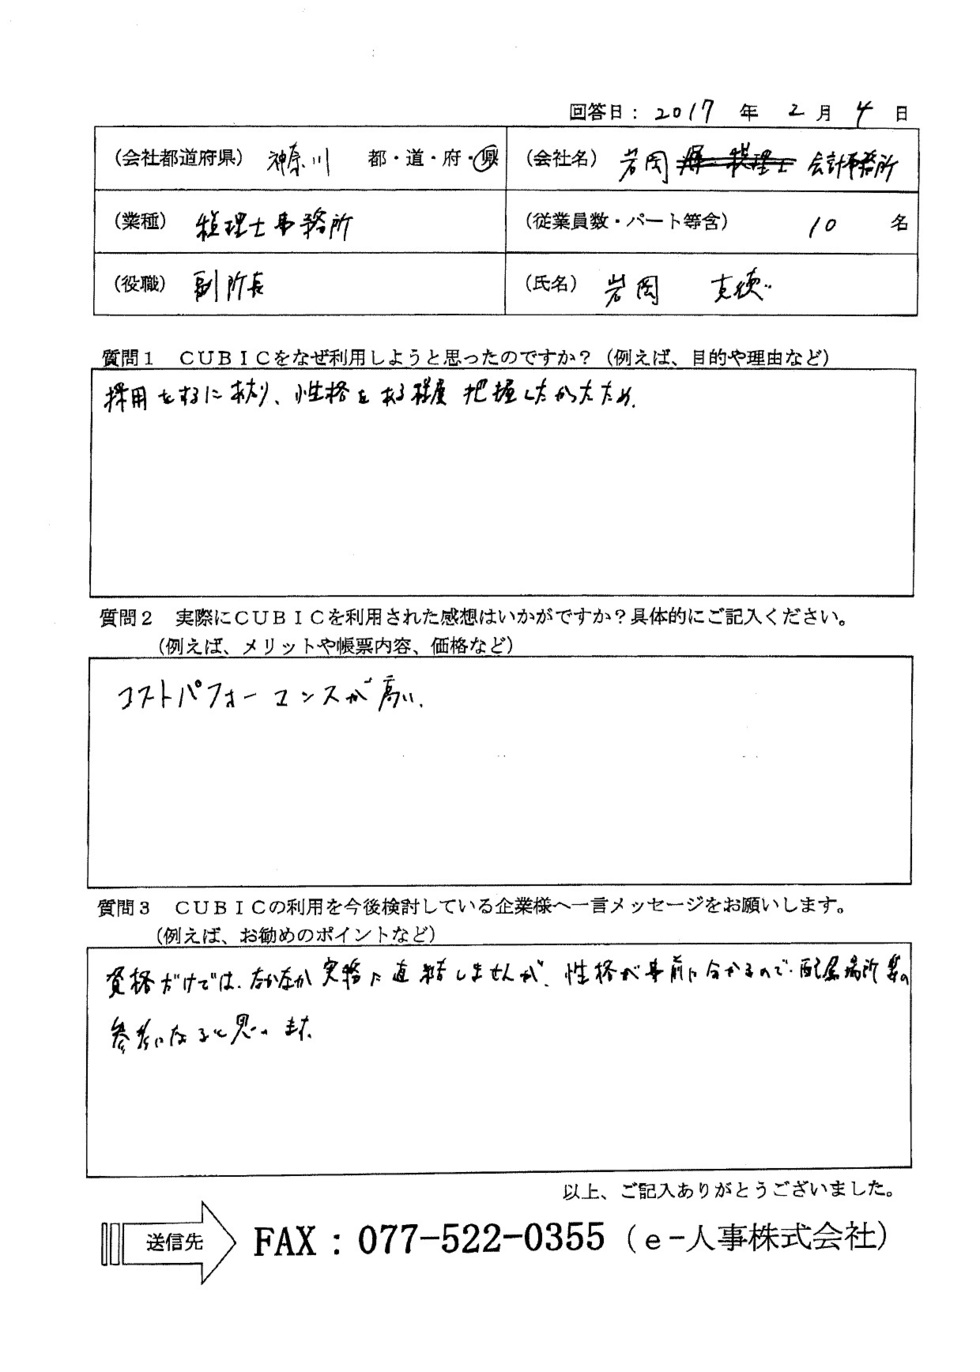 回答日：2017 年 2 月 4 日
(会社都道府県) 神奈川 都・道・府・県 (会社名) 岩岡 税理士 会計事務所
(業種) 税理士事務所 (従業員数・パート等含) 10 名
(役職) 副所長 (氏名) 岩岡 克徳
質問１ ＣＵＢＩＣをなぜ利用しようと思ったのですか？（例えば、目的や理由など）
採用をするにあたり、性格をある程度把握したかったため.
質問２ 実際にＣＵＢＩＣを利用された感想はいかがですか？具体的にご記入ください。
（例えば、メリットや帳票内容、価格など）
コストパフォーマンスが高い.
質問３ ＣＵＢＩＣの利用を今後検討している企業様へ一言メッセージをお願いします。
（例えば、お勧めのポイントなど）
資格だけでは、なかなか実務に直結しませんが、性格が事前に分かるので、配属場所等の
参考になると思います.
以上、ご記入ありがとうございました。
送信先 FAX：077-522-0355（ｅ-人事株式会社）